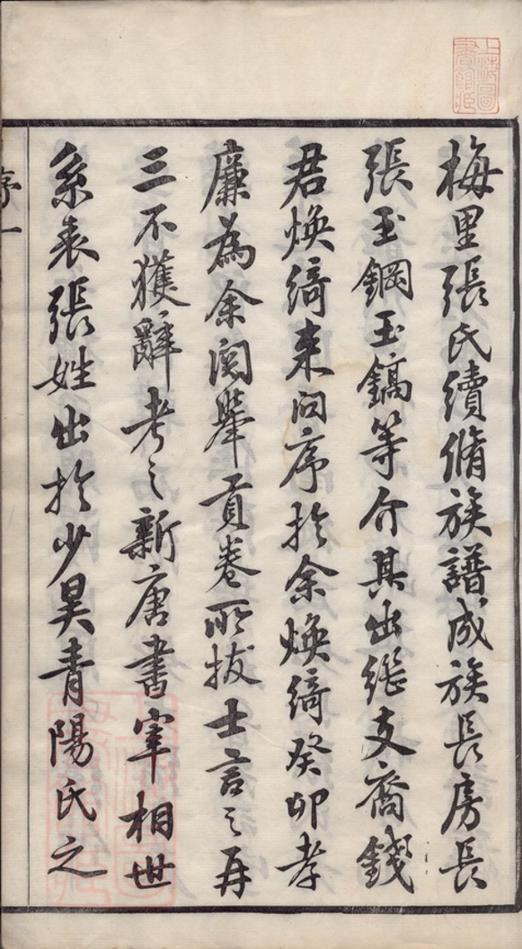 梅里張氏續脩族譜成族長房長
張玉鋼玉鎬等介其出繼支裔錢
君煥綺來问序於余煥綺癸卯孝
廉為余閱舉貢卷所拔士言之再
三不獲辭考之新唐書宰相世
系表張姓出於少昊青陽氏之
序一
上海圖書館藏